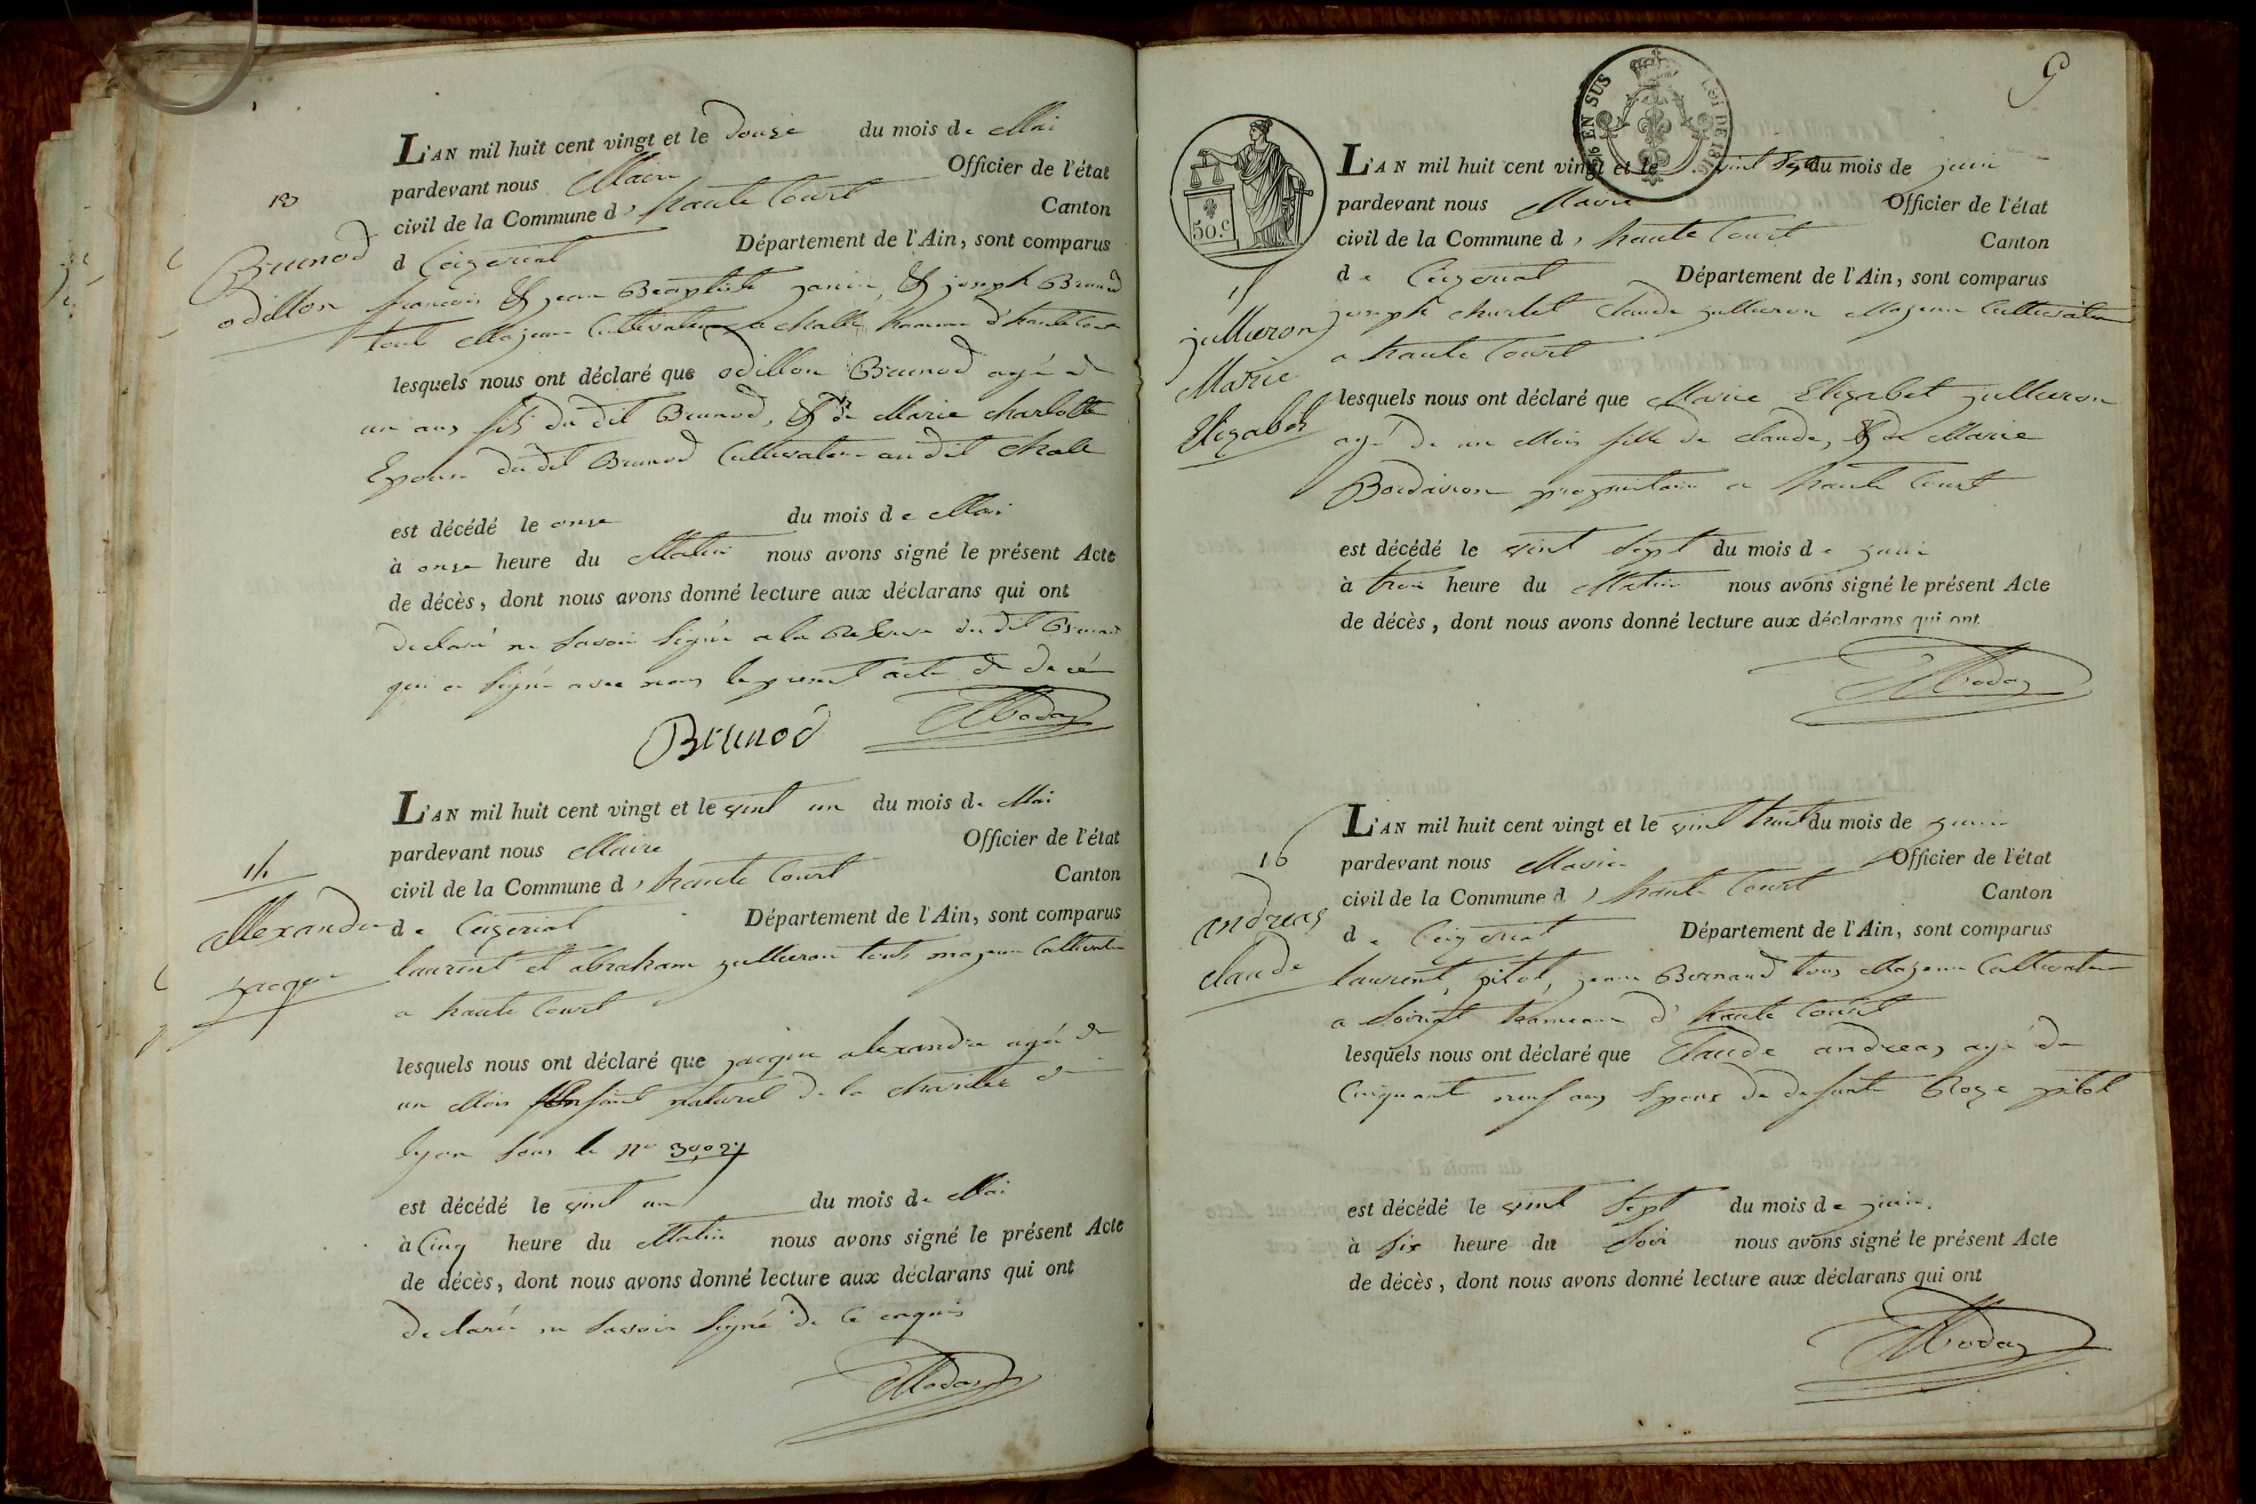 13
Brunod
odillon
L'AN mil huit cent vingt et le douze du mois de Mai
pardevant nous Maire Officier de l'état
civil de la Commune d'haute Court Canton
d Ceyzeriat Département de l'Ain, sont comparus
francois & jean Baptiste janin, & joseph Brunod
tout Majeur Cultivateur a challe hameau d'haute Court
lesquels nous ont déclaré que odillon Brunod agé de
un ans fils du dit Brunod, & de Marie charlotte
Epouse du dit Brunod Cultivateur au dit challe
est décédé le onze du mois de Mai
à onze heure du Matin nous avons signé le présent Acte
de décès, dont nous avons donné lecture aux déclarans qui ont
declaré ne savoir signé a la Reserve du dit Brunod
qui a signé avec nous le present acte de decé
Brunod
14
allexandre
jacque
L'AN mil huit cent vingt et le vint un du mois de Mai
pardevant nous Maire Officier de l'état
civil de la Commune d'haute Court Canton
de Ceyzeriat Département de l'Ain, sont comparus
laurent et abraham jullieron touts majeur Cultivateur
a haute Court
lesquels nous ont déclaré que jacque alexandre agé de
un Mois Enfant naturel de la charitée de
lyon sous le no
est décédé le vint un du mois de Mai
à Cinq heure du Matin nous avons signé le présent Acte
de décès, dont nous avons donné lecture aux déclarans qui ont
declaré ne savoir signé de ce enquis
9
EN SUS LOI DE 1816
50.c
15
jullieron
Marie
Elizabet
L'AN mil huit cent vingt et le vint Sept du mois de juin
pardevant nous Maire Officier de l'état
civil de la Commune d'haute Court Canton
de Ceyzeriat Département de l'Ain, sont comparus
joseph churlet Claude jullieron Majeur Cultivateur
a haute Court
lesquels nous ont déclaré que Marie Elizabet jullieron
agé de un Mois fille de claude, & de Marie
proprietaire a haute Court
est décédé le vint Sept du mois de juin
à trois heure du Matin nous avons signé le présent Acte
de décès, dont nous avons donné lecture aux déclarans qui ont
16
andreas
claude
L'AN mil huit cent vingt et le vint huit du mois de juin
pardevant nous Maire Officier de l'état
civil de la Commune d'haute Court Canton
de Ceyzeriat Département de l'Ain, sont comparus
laurent, pitol, jean Bornand tous Majeur Cultivateur
a hameau d'haute Court
lesquels nous ont déclaré que Claude andreas agé de
Cinquante neuf ans Epoux de defunte Roze pitol
est décédé le vint Sept du mois de juin.
à Six heure du Soir nous avons signé le présent Acte
de décès, dont nous avons donné lecture aux déclarans qui ont